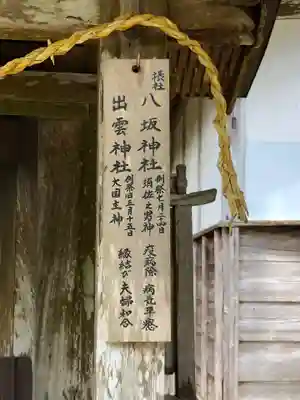 摂社
八坂神社
例祭七月二十四日
須佐之男神
疫病除 病気平癒
出雲神社
例祭旧三月十五日
大国主神
縁結び 夫婦和合